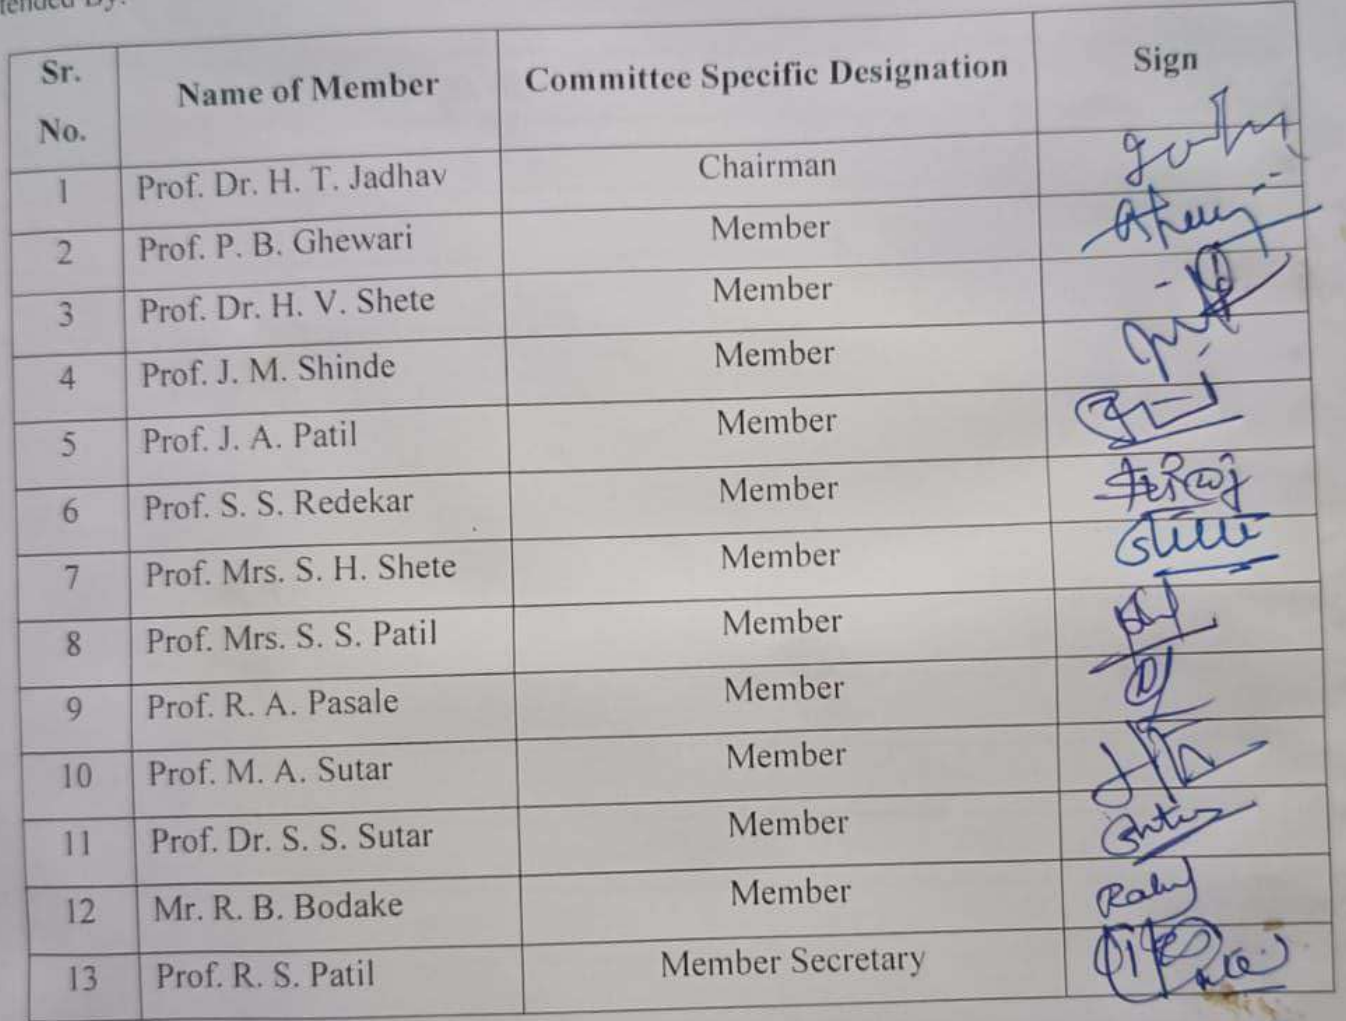 Sr. No. Name of Member Committee Specific Designation Sign
1 Prof. Dr. H. T. Jadhav Chairman
2 Prof. P. B. Ghewari Member
3 Prof. Dr. H. V. Shete Member
4 Prof. J. M. Shinde Member
5 Prof. J. A. Patil Member
6 Prof. S. S. Redekar Member
7 Prof. Mrs. S. H. Shete Member
8 Prof. Mrs. S. S. Patil Member
9 Prof. R. A. Pasale Member
10 Prof. M. A. Sutar Member
11 Prof. Dr. S. S. Sutar Member
12 Mr. R. B. Bodake Member
13 Prof. R. S. Patil Member Secretary